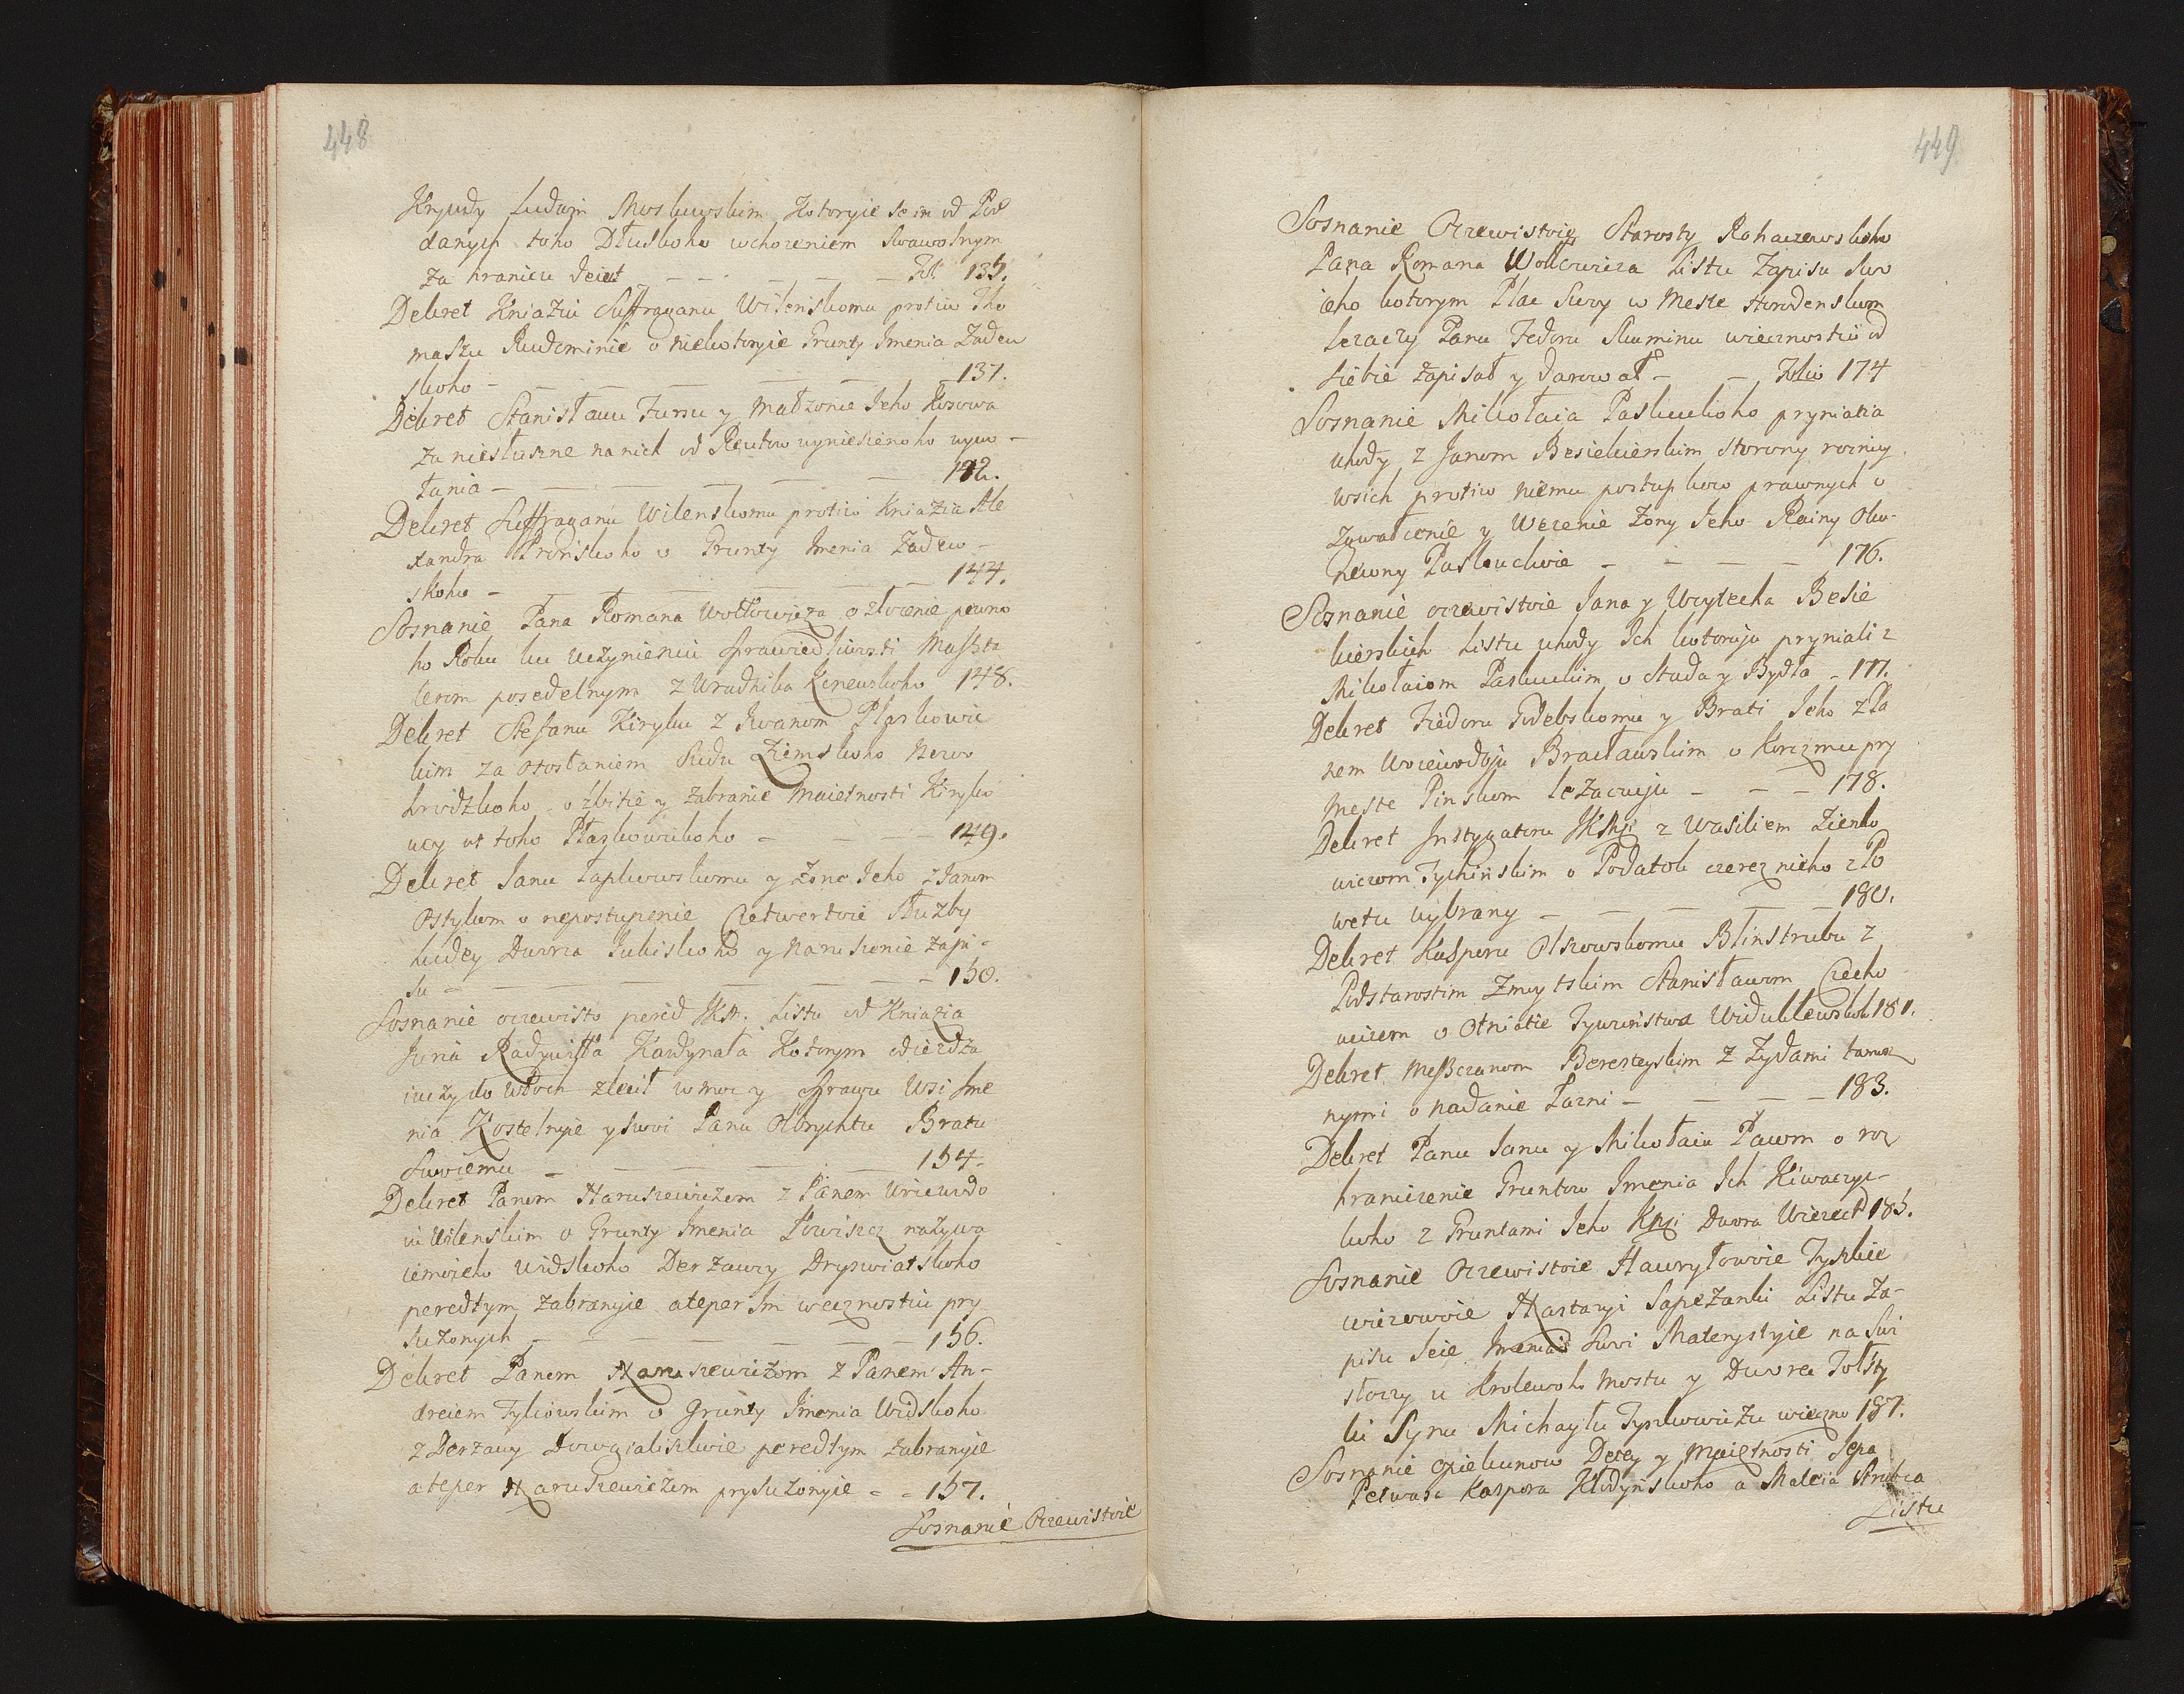 448
Krywdy Ludem Moskowskim Kotoryie se im od Pod
danych toho Dłuskoho wchożeniem swawolnym
za hranicu deiut — — — Fol: 135.
Dekret Kniaziu Suffraganu Wilenskomu protiw Tho
maszu Rudominie o niekotoryie Grunty Imenia Zadew
skoho — — — — 137.
Dekret Stanisławu Fursu y Małżonce Jeho Kosowa
za niesłuszne na nich od Reutow uyniesienoho uywo-
łania — — — — 142.
Dekret Suffraganu Wilenskomu protiw Kniazia Ale
xandra Pronskoho o Grunty Imenia Zadew-
skoho — — — — 144.
Sosnanie Pana Romana Wołłowicza o złożenie pewno
ho Roku ku uczynieniu sprawiedliwosti Maszta
lerom posedelnym z Uradnika Kenewskoho 148.
Dekret Stefanu Kirylu z Iwanom Płaskowic
kim za otosłaniem Sudu Ziemskoho Nowo
hrodzkoho o zbitie y zabranie Maietnosti Kirylo
wcy ot toho Płaskowickoho — — 149.
Dekret Janu Łapkowskomu y Żone Jeho z Janom
Ostykom o nepostupenie Czetwertoie Służby
ludey Dworca Jubiskoho y naruszenie zapi-
su — — — — 150.
Sosnanie oczewisto pered JKM. Listu od Kniazia
Juria Radywiła Kardynała Kotorym odieżdża
iuczy do Włoch zlecił w moc y sprawu Wsi Ime
nia Kostelnyie y swoi Panu Olbrychtu Bratu
Swoiemu — — — — 154.
Dekret Panom Naruszewiczom z Panem Woiewodo
iu Wilenskim o Grunty Imenia Łowiszcz nazywa
iemoieho Widskoho Derżawcy Drywiatskoho
peredtym zabranyie a teper Im wecznostiu pry
sużonych — — — — 156.
Dekret Panom Naruszewiczom z Panem An-
dreiem Tylkowskim o Grunty Imenia Widskoho
z Derżawy Dowgialiszkoie peredtym zabranyie
a teper Naruszewiczom prysużonyie - - 157.
Sosnanie Oczewistoie
449
Sosnanie Oczewistoie Starosty Rohaczewskoho
Pana Romana Wołłowicza Listu Zapisu Swo
ieho kotorym Plac Swoy w Meste Horodenskom
leżaczy Panu Fedoru Skuminu wiecznostiu od
siebie zapisał y darował — — Folio 174
Sosnanie Mikołaia Paskuckoho pryniatia
uhody z Janom Besiekierskim storony roznicy
wsich protiw niemu postupkow prawnych o
zgwałcenie y Wezenie Żony Jeho Rainy Olu-
newny Paskuckoie — — — 176.
Sosnanie oczewistoie Jana y Woytecha Besie
kierskich Listu uhody Ich kotoruju pryniali z
Mikołaiom Paskuckim o Stada y Bydła - 177.
Dekret Fiedoru Godebskomu y Brati Jeho z Pa
nem Woiewodoju Bracławskim o Korczmu pry
Meste Pinskom leżacuiu — — — 178.
Dekret Instygatoru JKMsi z Wasiliem Zienko
wiczom Tychińskim o Podatok czerez nieho z Po
wetu wybrany — — — — 180.
Dekret Kasperu Olszowskomu Blinstrubu z
Podstarostim Żmoytskim Stanisławom Czecho
wiczem o Otniatie Tywuństwa Widuklewskoho 181.
Dekret Meszczanom Beresteyskim z Żydami tamoz
nymi o nadanie Łazni — — — 183.
Dekret Panu Janu y Mikołaiu Pawm o roz
hraniczenie Gruntow Imenia Ich Kiwaczyc-
koho z Gruntami Jeho KMsi Dwora Wierecho 185.
Sosnanie Oczewistoie Hawryłowoie Tyszkie
wiczowoie Nastazyi Sapeżanki Listu Za-
pisu seie Imenia Swoi Materystyie na Swi
słoczy u Krolewoho Mostu y Dworca Tołsty
ki Synu Michayłu Tyszkowiczu wieczno 187.
Sosnanie Opiekunow Detey y Maietnosti Jera
Petwasa Kaspora Kłodynskoho a Malcia Strubca
Listu